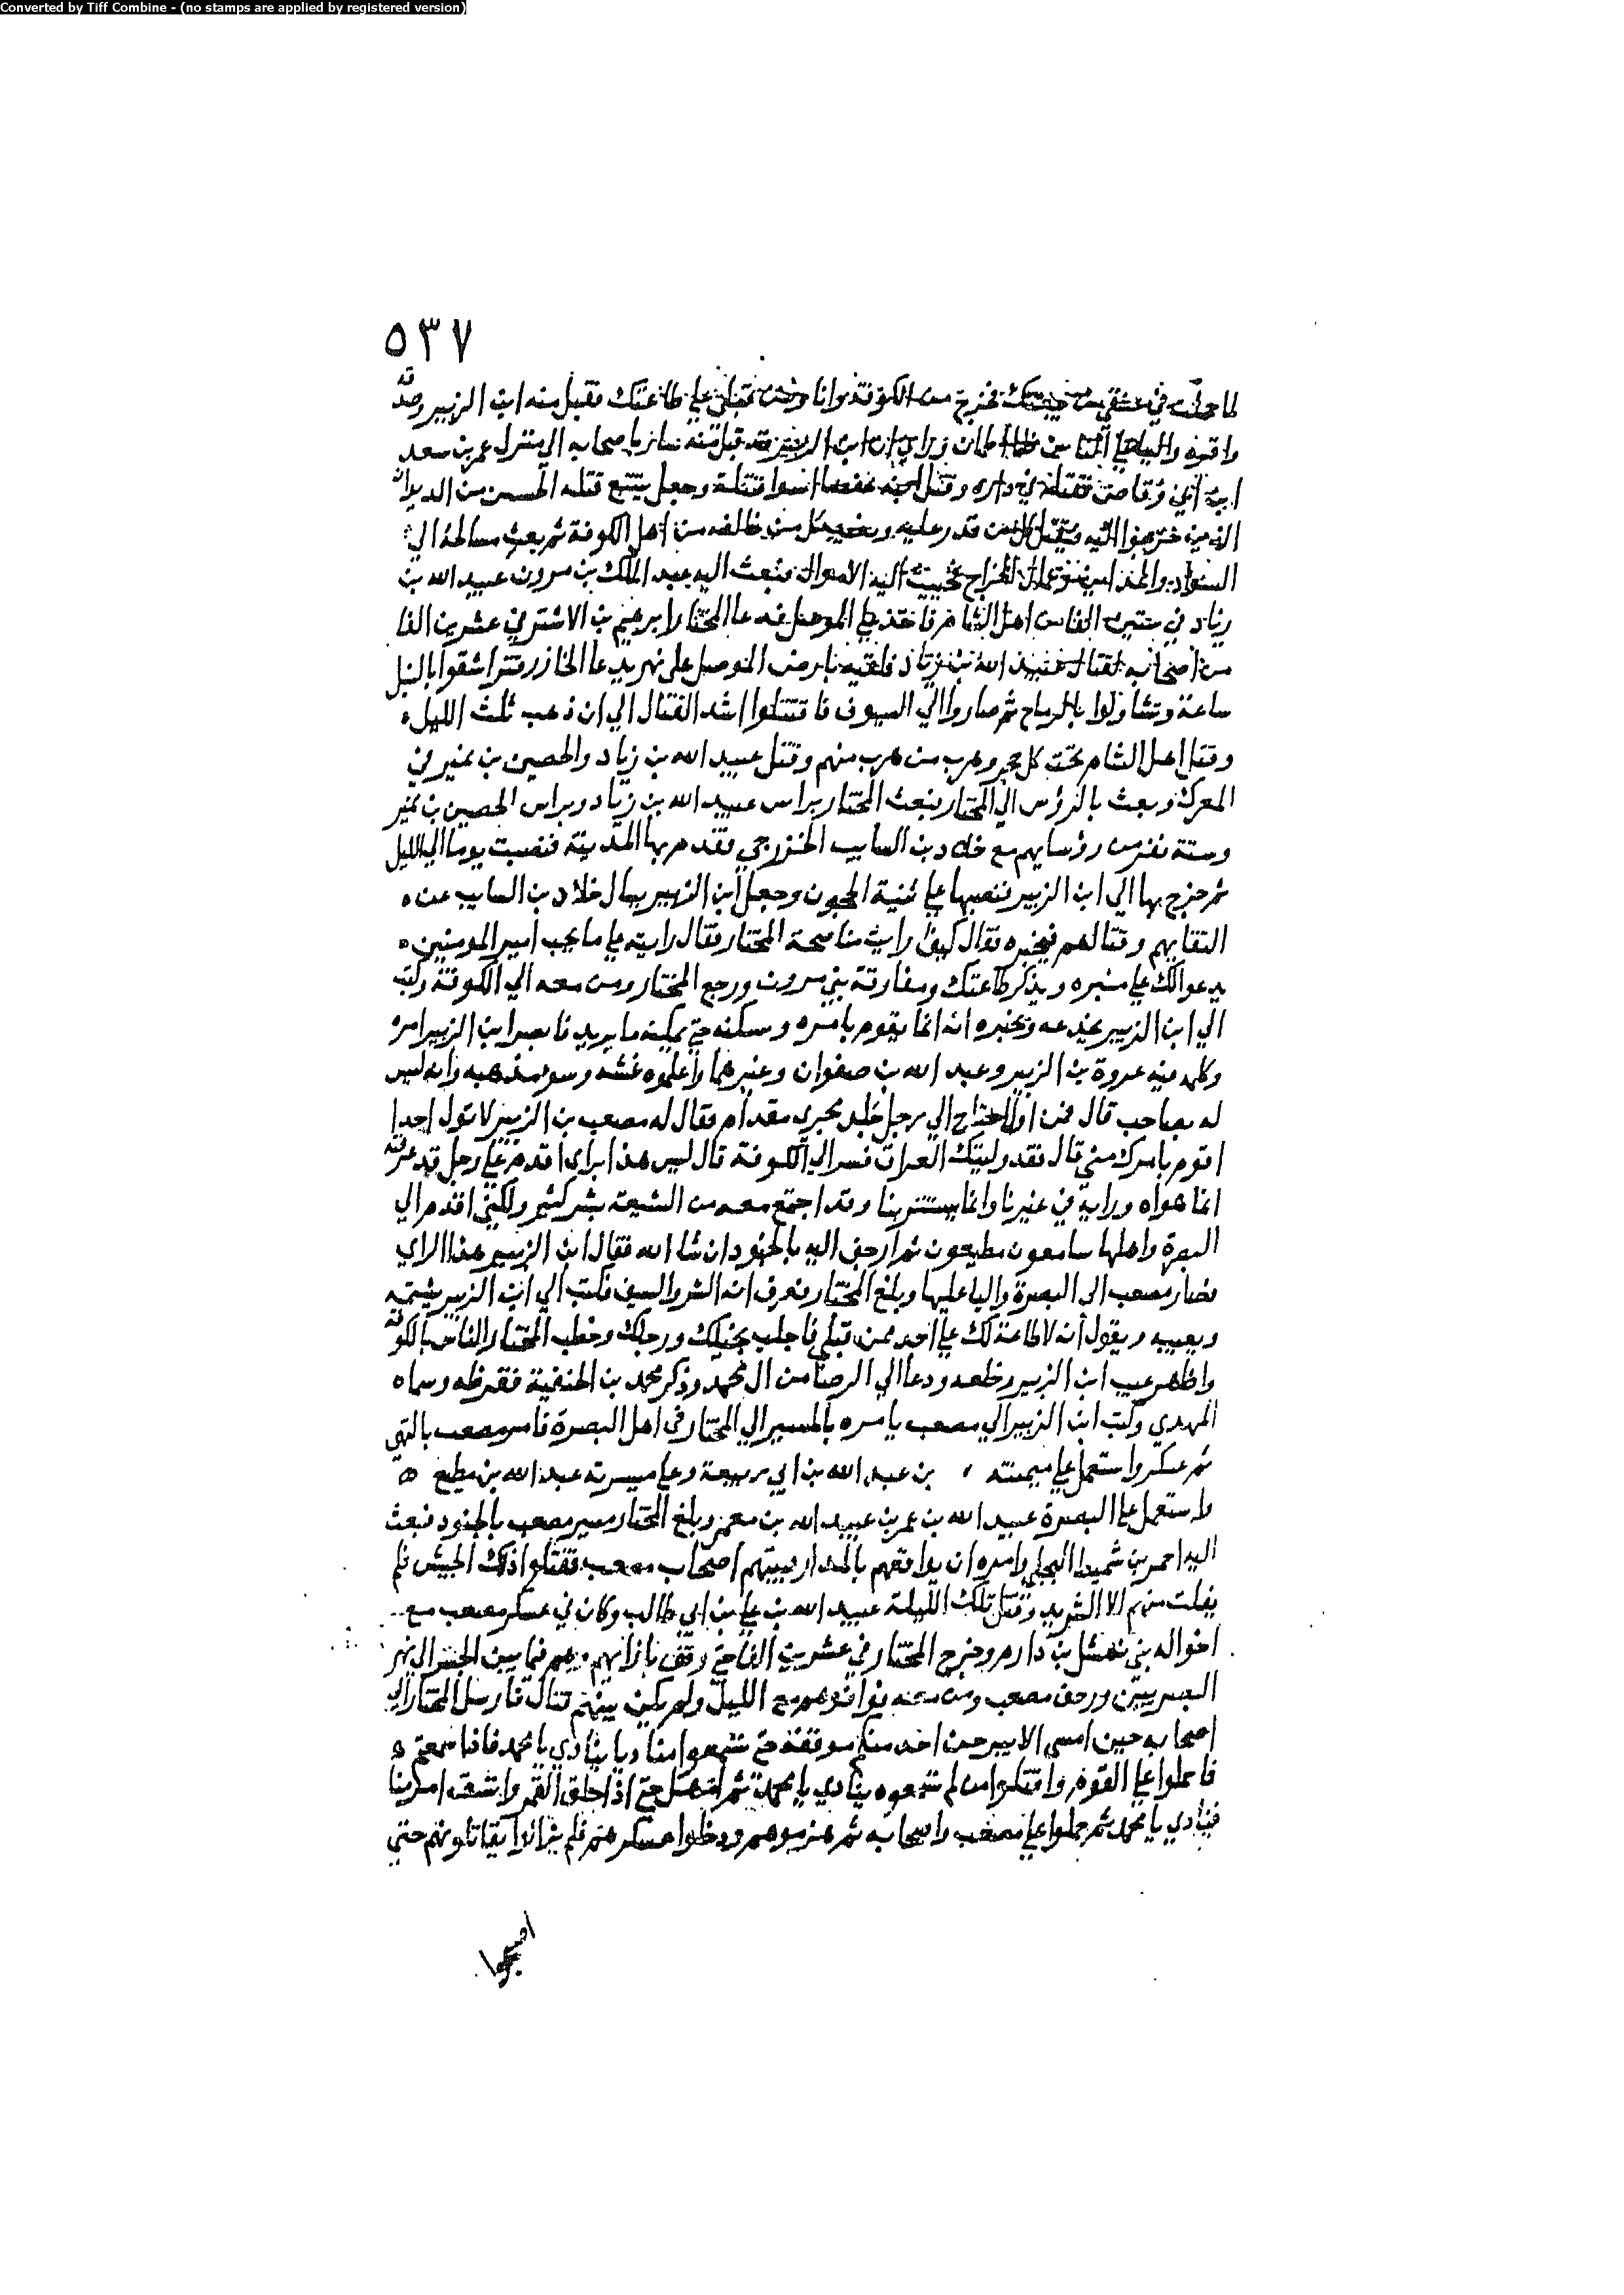 Converted by Tiff Combine - (no stamps are applied by registered version)
٥٣٧
فخرج من الكوفة وانا ومن قبلي علي طاعتك فقبل منه ابن الزبير وصدقه
واقره واليا علي الناس فلما اطمان وراي ان ابن الزبير قد قبل منه سار باصحابه الي منزل عمر بن سعد
ابن ابي وقاص فقتله في داره وقتل ابنه حفصا اسوا قتلة وجعل يتتبع قتله الحسين من الديوان
الذين خرجوا اليه فيقتل كل من قدر عليه من خالفه من اهل الكوفة ثم بعث مسالحه الي
السواد والمداين وعمال الخراج فجبيت اليه الاموال فبعث اليه عبد الملك بن مرون عبيد الله بن
زياد في ستين الفا من اهل الشام فاخذ علي الموصل فدعا المختار ابرهيم بن الاشتر في عشرين الفا
من اصحابه لقتال عبيد الله بن زياد فلقيه بارض الموصل علي نهر يدعا الخازر فتراشقوا بالنبل
ساعة وتشاولوا بالرماح ثم صاروا الي السيوف فاقتتلوا اشد القتال الي ان ذهب ثلث الليل
وقتل اهل الشام تحت كل حجر وهرب من هرب منهم وقتل عبيد الله بن زياد والحصين بن نمير في
المعركة وبعث بالرؤس الي المختار فبعث المختار براس عبيد الله بن زياد وبراس الحصين بن نمير
وستة نفر من رؤسايهم مع خلاد بن السايب الخزرجي فقدم بها المدينة فنصبت يوما الي الليل
ثم خرج بها الي ابن الزبير فنصبها علي ثنية الحجون وجعل ابن الزبير يسال خلاد بن السايب عن
التقايهم وقتالهم فيخبره فقال كيف رايت مناصحة المختار فقال رايته علي ما يحب امير المومنين
يدعوا لك علي منبره ويذكر طاعتك ومفارقة بني مرون ورجع المختار ومن معه الي الكوفة وكتب
الي ابن الزبير يخدعه ويخبره انه انما يقوم بامره ويسكنه حتي يمكنه ما يريد فابصر ابن الزبير امره
وكلمه فيه عروة بن الزبير وعبد الله بن صفوان وغيرهما واعلموه غشه وسو مذهبه وانه ليس
له بصاحب قال فمن اولي احتاج الي رجل جلد مجزي مقدام فقال له مصعب بن الزبير لا تول احدا
اقوم بامرك مني قال فقد وليتك العراق فسر الي الكوفة قال ليس هذا براي اقدم علي رجل قد عرفته
انما هواه ورايه في غيرنا وانما يستتر بنا وقد اجتمع معه من الشيعة بشر كثير ولكني اقدم الي
البصرة واهلها سامعون مطيعون ثم ازحف اليه بالجنود ان شا الله فقال ابن الزبير هذا الراي
فصار مصعب الي البصرة واليا عليها وبلغ المختار فعرف انه الشر والسيف فكتب الي ابن الزبير يشتمه
ويعيبه ويقول انه لا طاعة لك علي احد ممن قبلي فاجلب بخيلك ورجلك وخطب المختار الناس بالكوفة
واظهر عيب ابن الزبير وخلعه ودعا الي الرضا من ال محمد وذكر محمد بن الحنفية فقرظه وسماه
المهدي وكتب ابن الزبير الي مصعب يامره بالمسير الي المختار في اهل البصرة فامر مصعب بالتهي
ثم عسكر واستعمل علي ميمنته بن عبد الله بن ابي ربيعة وعلي ميسرته عبد الله بن مطيع
واستعمل علي البصرة عبيد الله بن عمر بن عبيد الله بن معمر وبلغ المختار مسير مصعب بالجنود فبعث
اليه احمر بن شميط البجلي وامره ان يواقعهم بالمدار فبيتهم اصحاب مصعب فقتلوا ذلك الجيش فلم
يفلت منهم الا الشريد وقتل تلك الليلة عبيد الله بن علي بن ابي طالب وكان في عسكر مصعب مع
اخواله بني نهشل بن دارم وخرج المختار في عشرين الفا حتي وقف بازايهم وهم فيما بين الجسر الي نهر
البصريين وزحف مصعب ومن معه فوافوهم مع الليل ولم يكن بينهم قتال فارسل المختار الي
اصحابه حين امسي الا يبرحن احد منكم موقفه حتي تسمعوا مناديا ينادي يا محمد فاذا سمعتموه
فاحملوا علي القوم واقتلوا من لم تسمعوه ينادي يا محمد ثم امهل حتي اذا حلق القمر واتسق امر مناديا
فينادي يا محمد ثم حملوا علي مصعب واصحابه ثم هزموهم ودخلوا عسكرهم فلم يزالوا يقاتلونهم حتي
اصبحوا